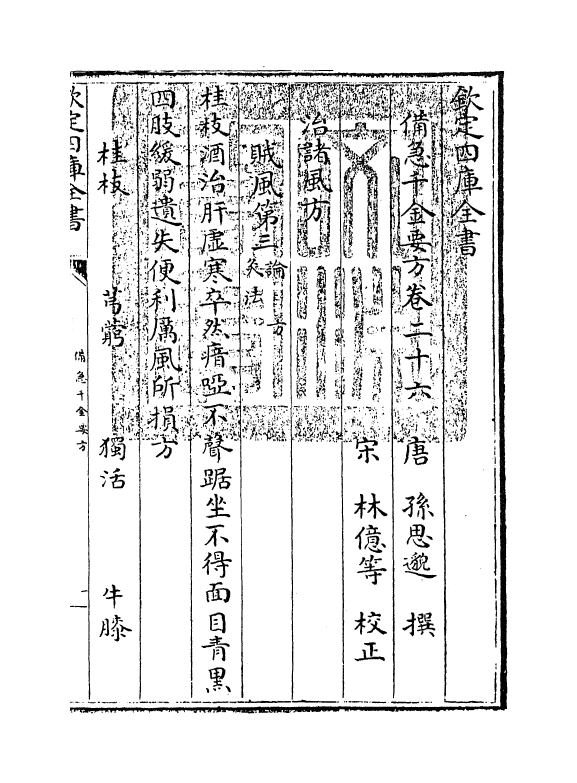 欽定四庫全書
備急千金要方卷二十六　唐　孫思邈　撰
宋　林億等　校正
治諸風方
賊風第三　論　方
灸法
桂枝酒治肝虛寒卒然瘖啞不聲踞坐不得面目青黑
四肢緩弱遺失便利厲風所損方
桂枝　芎藭　獨活　牛膝
欽定四庫全書
備急千金要方